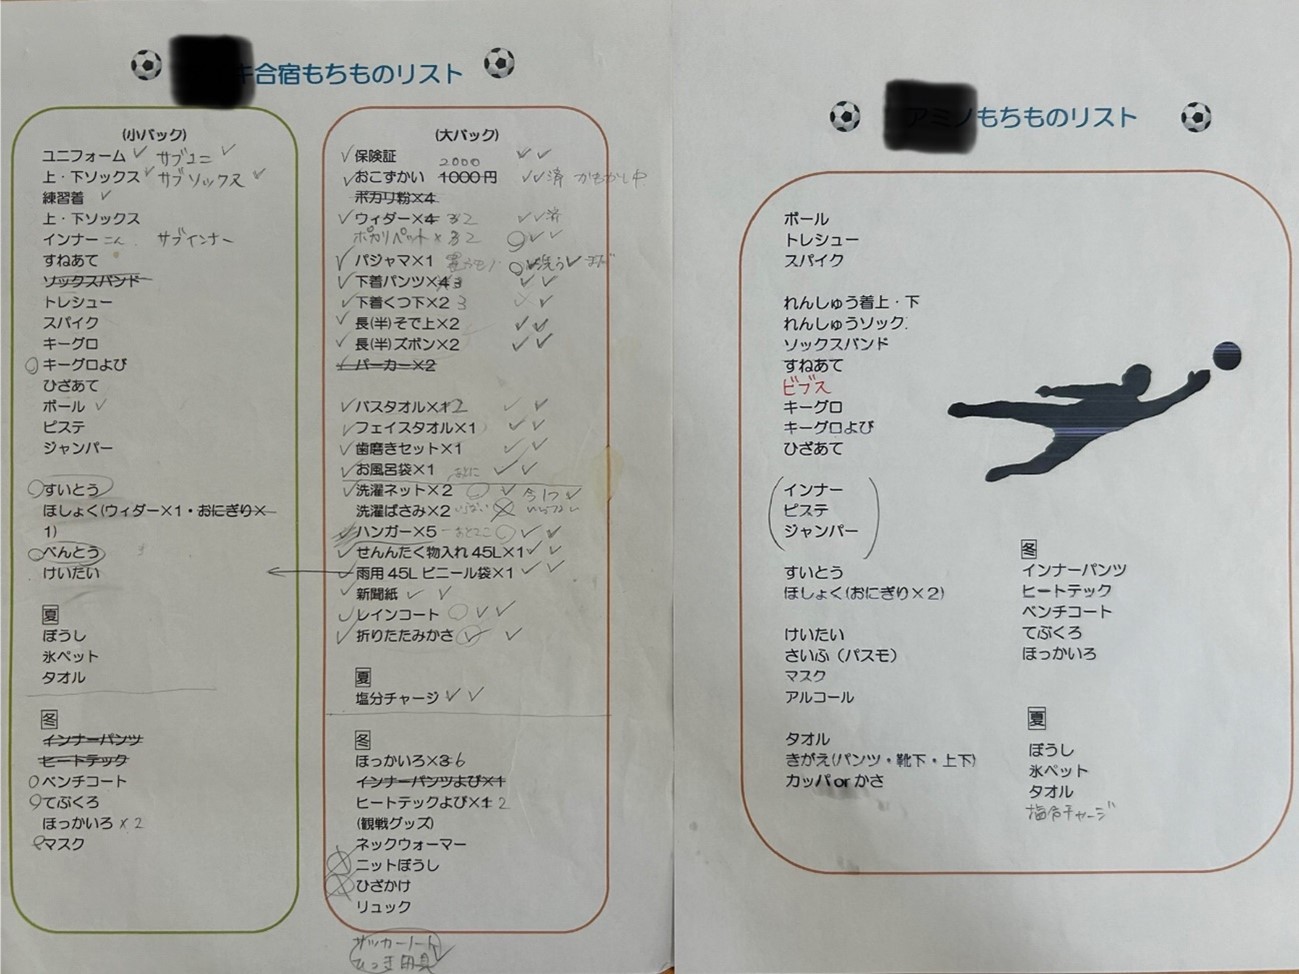 キ合宿もちものリスト
(小バック)
ユニフォーム✓ サブユニ✓
上・下ソックス✓ サブソックス✓
練習着✓
上・下ソックス
インナー サブインナー
すねあて
ソックスバンド
トレシュー
スパイク
キーグロ
キーグロよび
ひざあて
ボール✓
ピステ
ジャンパー
すいとう
ほしょく(ウィダー×1・おにぎり×
1)
べんとう
けいたい
夏
ぼうし
氷ペット
タオル
冬
インナーパンツ
ヒートテック
ベンチコート
てぶくろ
ほっかいろ×2
マスク
(大バック)
✓保険証 ✓✓
2000
✓おこずかい 1000円 ✓✓済
ポカリ粉×4
✓ウィダー×4 32 ✓✓済
ポカリペット×32 ✓✓
✓パジャマ×1
✓下着パンツ×43 ✓✓
✓下着くつ下×2 3 ✓✓
✓長(半)そで上×2 ✓✓
✓長(半)ズボン×2 ✓✓
✓パーカー×2
✓バスタオル×12 ✓✓
✓フェイスタオル×1 ✓✓
✓歯磨きセット×1 ✓✓
✓お風呂袋×1 ✓✓
✓洗濯ネット×2 ✓ ✓
洗濯ばさみ×2
✓ハンガー×5 ✓✓
✓せんんたく物入れ45L×1✓✓
←雨用45Lビニール袋×1✓✓
✓新聞紙✓✓
✓レインコート ✓✓
✓折りたたみかさ✓ ✓
夏
塩分チャージ✓✓
冬
ほっかいろ×36
インナーパンツよび×1
ヒートテックよび×12
(観戦グッズ)
ネックウォーマー
ニットぼうし
ひざかけ
リュック
サッカーノート✓
ひっき用具
アミノもちものリスト
ボール
トレシュー
スパイク
れんしゅう着上・下
れんしゅうソック
ソックスバンド
すねあて
ビブス
キーグロ
キーグロよび
ひざあて
インナー
ピステ
ジャンパー
すいとう
ほしょく(おにぎり×2)
けいたい
さいふ(パスモ)
マスク
アルコール
タオル
きがえ(パンツ・靴下・上下)
カッパorかさ
冬
インナーパンツ
ヒートテック
ベンチコート
てぶくろ
ほっかいろ
夏
ぼうし
氷ペット
タオル
塩分チャージ